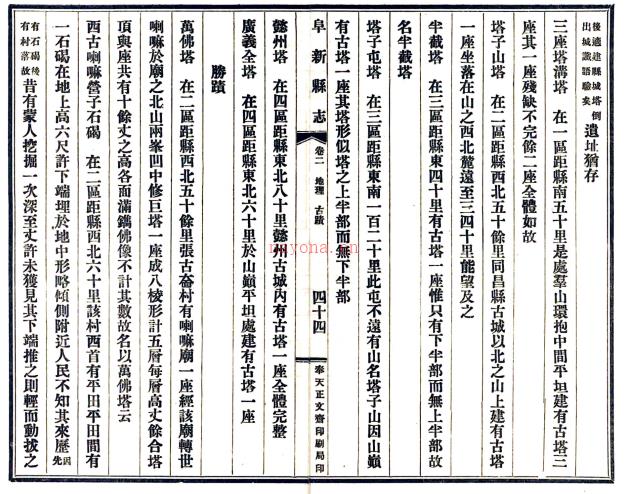 後適建縣城塔倒
出城讖語驗矣
遺址猶存
三座塔溝塔　在一區距縣南五十里是處羣山環抱中間平坦建有古塔三
座其一座殘缺不完餘二座全體如故
塔子山塔　在二區距縣西北五十餘里同昌縣古城以北之山上建有古塔
一座坐落在山之西北麓遠至三四十里能望及之
半截塔　在三區距縣東四十里有古塔一座惟只有下半部而無上半部故
名半截塔
塔子屯塔　在三區距縣東南一百二十里此屯不遠有山名塔子山因山巔
有古塔一座其塔形似塔之上半部而無下半部
阜新縣志　卷二　地理　古蹟　四十四　奉天正文齋印刷局印
懿州塔　在四區距縣東北八十里懿州古城內有古塔一座全體完整
廣義全塔　在四區距縣東北六十里於山巔平坦處建有古塔一座
勝蹟
萬佛塔　在二區距縣西北五十餘里張古奋村有喇嘛廟一座經該廟轉世
喇嘛於廟之北山兩峯凹中修巨塔一座成八棱形計五層每層高丈餘合塔
頂與座共有十餘丈之高各面滿鐫佛像不計其數故名以萬佛塔云
西古喇嘛營子石碣　在二區距縣西北六十里該村西首有平田平田間有
一石碣在地上高六尺許下端埋於地中形略傾側附近人民不知其來歷因先
有石碣後
有村落故
昔有蒙人挖掘一次深至丈許未獲見其下端推之則輕而動拔之
neyona.cn